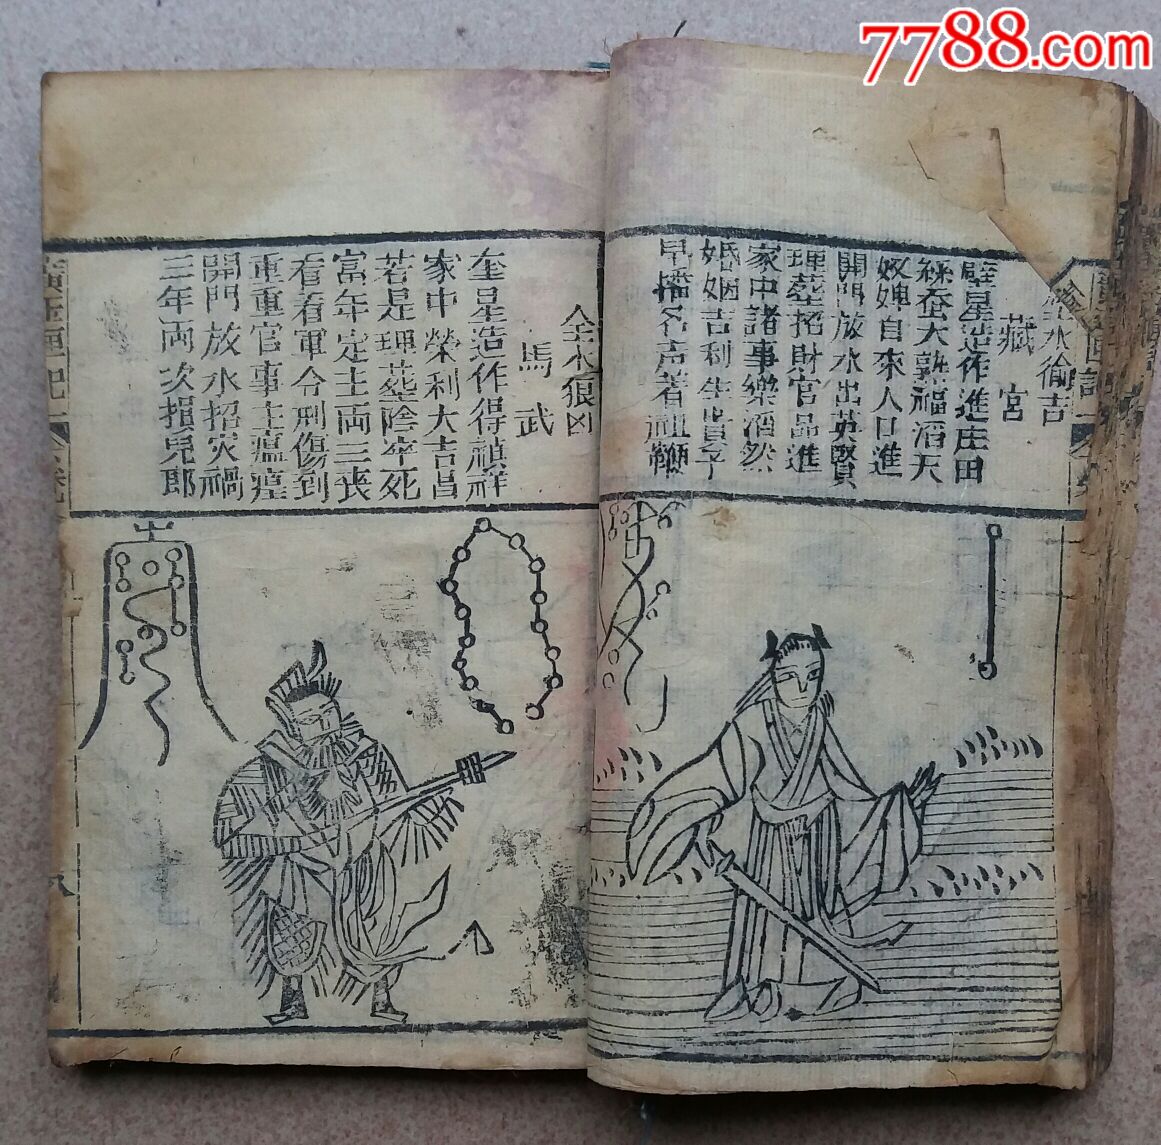 7788.com
水偷吉
藏宮
壁星造作進庄田
絲蚕大熟福滔天
奴婢自來人口進
開門放水出英賢
理塟招財官品進
家中諸事樂滔然
婚姻吉利生貴子
早播名声著祖鞭
全木狼凶
馬武
奎星造作得禎祥
家中榮利大吉昌
若是理塟陰卒死
當年定主両三丧
看看軍令刑傷到
重重官事主瘟瘴
開門放水招灾禍
三年両次損兒郎
匣記
八